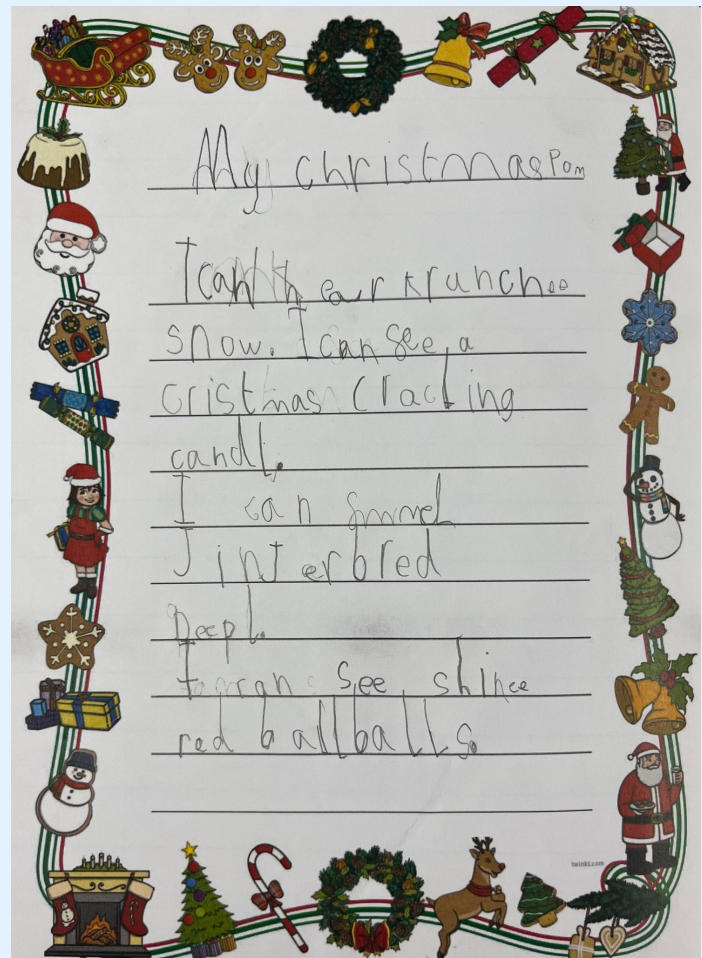 My christmas Pom
I can h ear krunchee
snow. I can see a
cristmas Cracking
candl.
I can smmel
Jinjerbred
Peepl.
I can see shinee
red ballballs.
twinkl.com